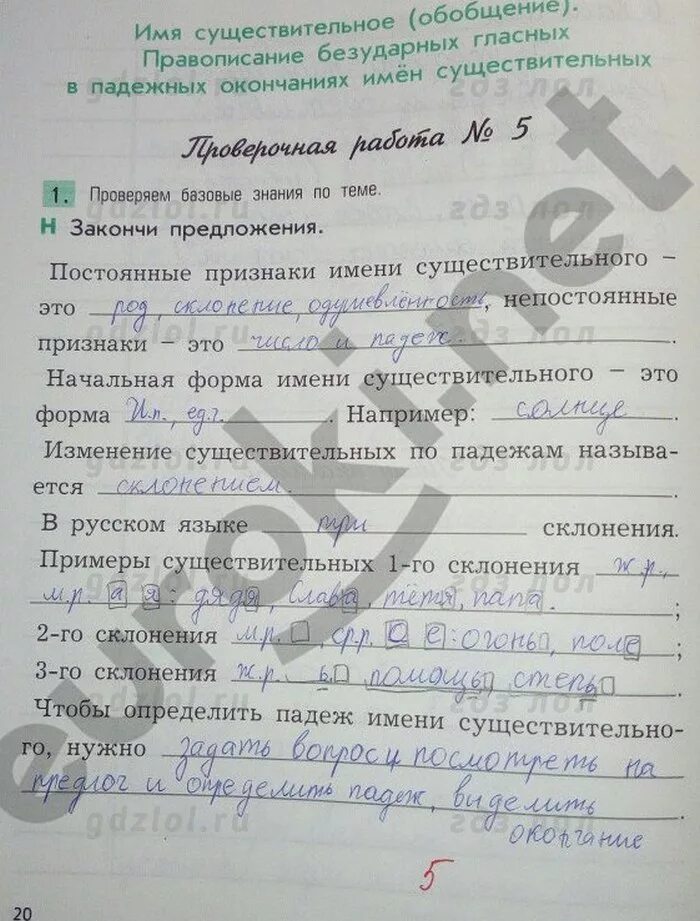 Имя существительное (обобщение).
Правописание безударных гласных
в падежных окончаниях имён существительных
Проверочная работа № 5
1. Проверяем базовые знания по теме.
Н Закончи предложения.
Постоянные признаки имени существительного –
это род, склонение, одушевлённость, непостоянные
признаки – это число и падеж.
Начальная форма имени существительного – это
форма И.п., ед.ч. Например: солнце.
Изменение существительных по падежам называ-
ется склонением.
В русском языке три склонения.
Примеры существительных 1-го склонения ж.р.,
м.р. а я: дядя, Слава, тётя, папа. ;
2-го склонения м.р. , ср.р. о е: огонь, поле ;
3-го склонения ж.р. ь помощь, степь
Чтобы определить падеж имени существительно-
го, нужно задать вопрос и посмотреть на
предлог и определить падеж, выделить .
окончание
5
20
euroki.net
gdzlol.ru
гдз лол